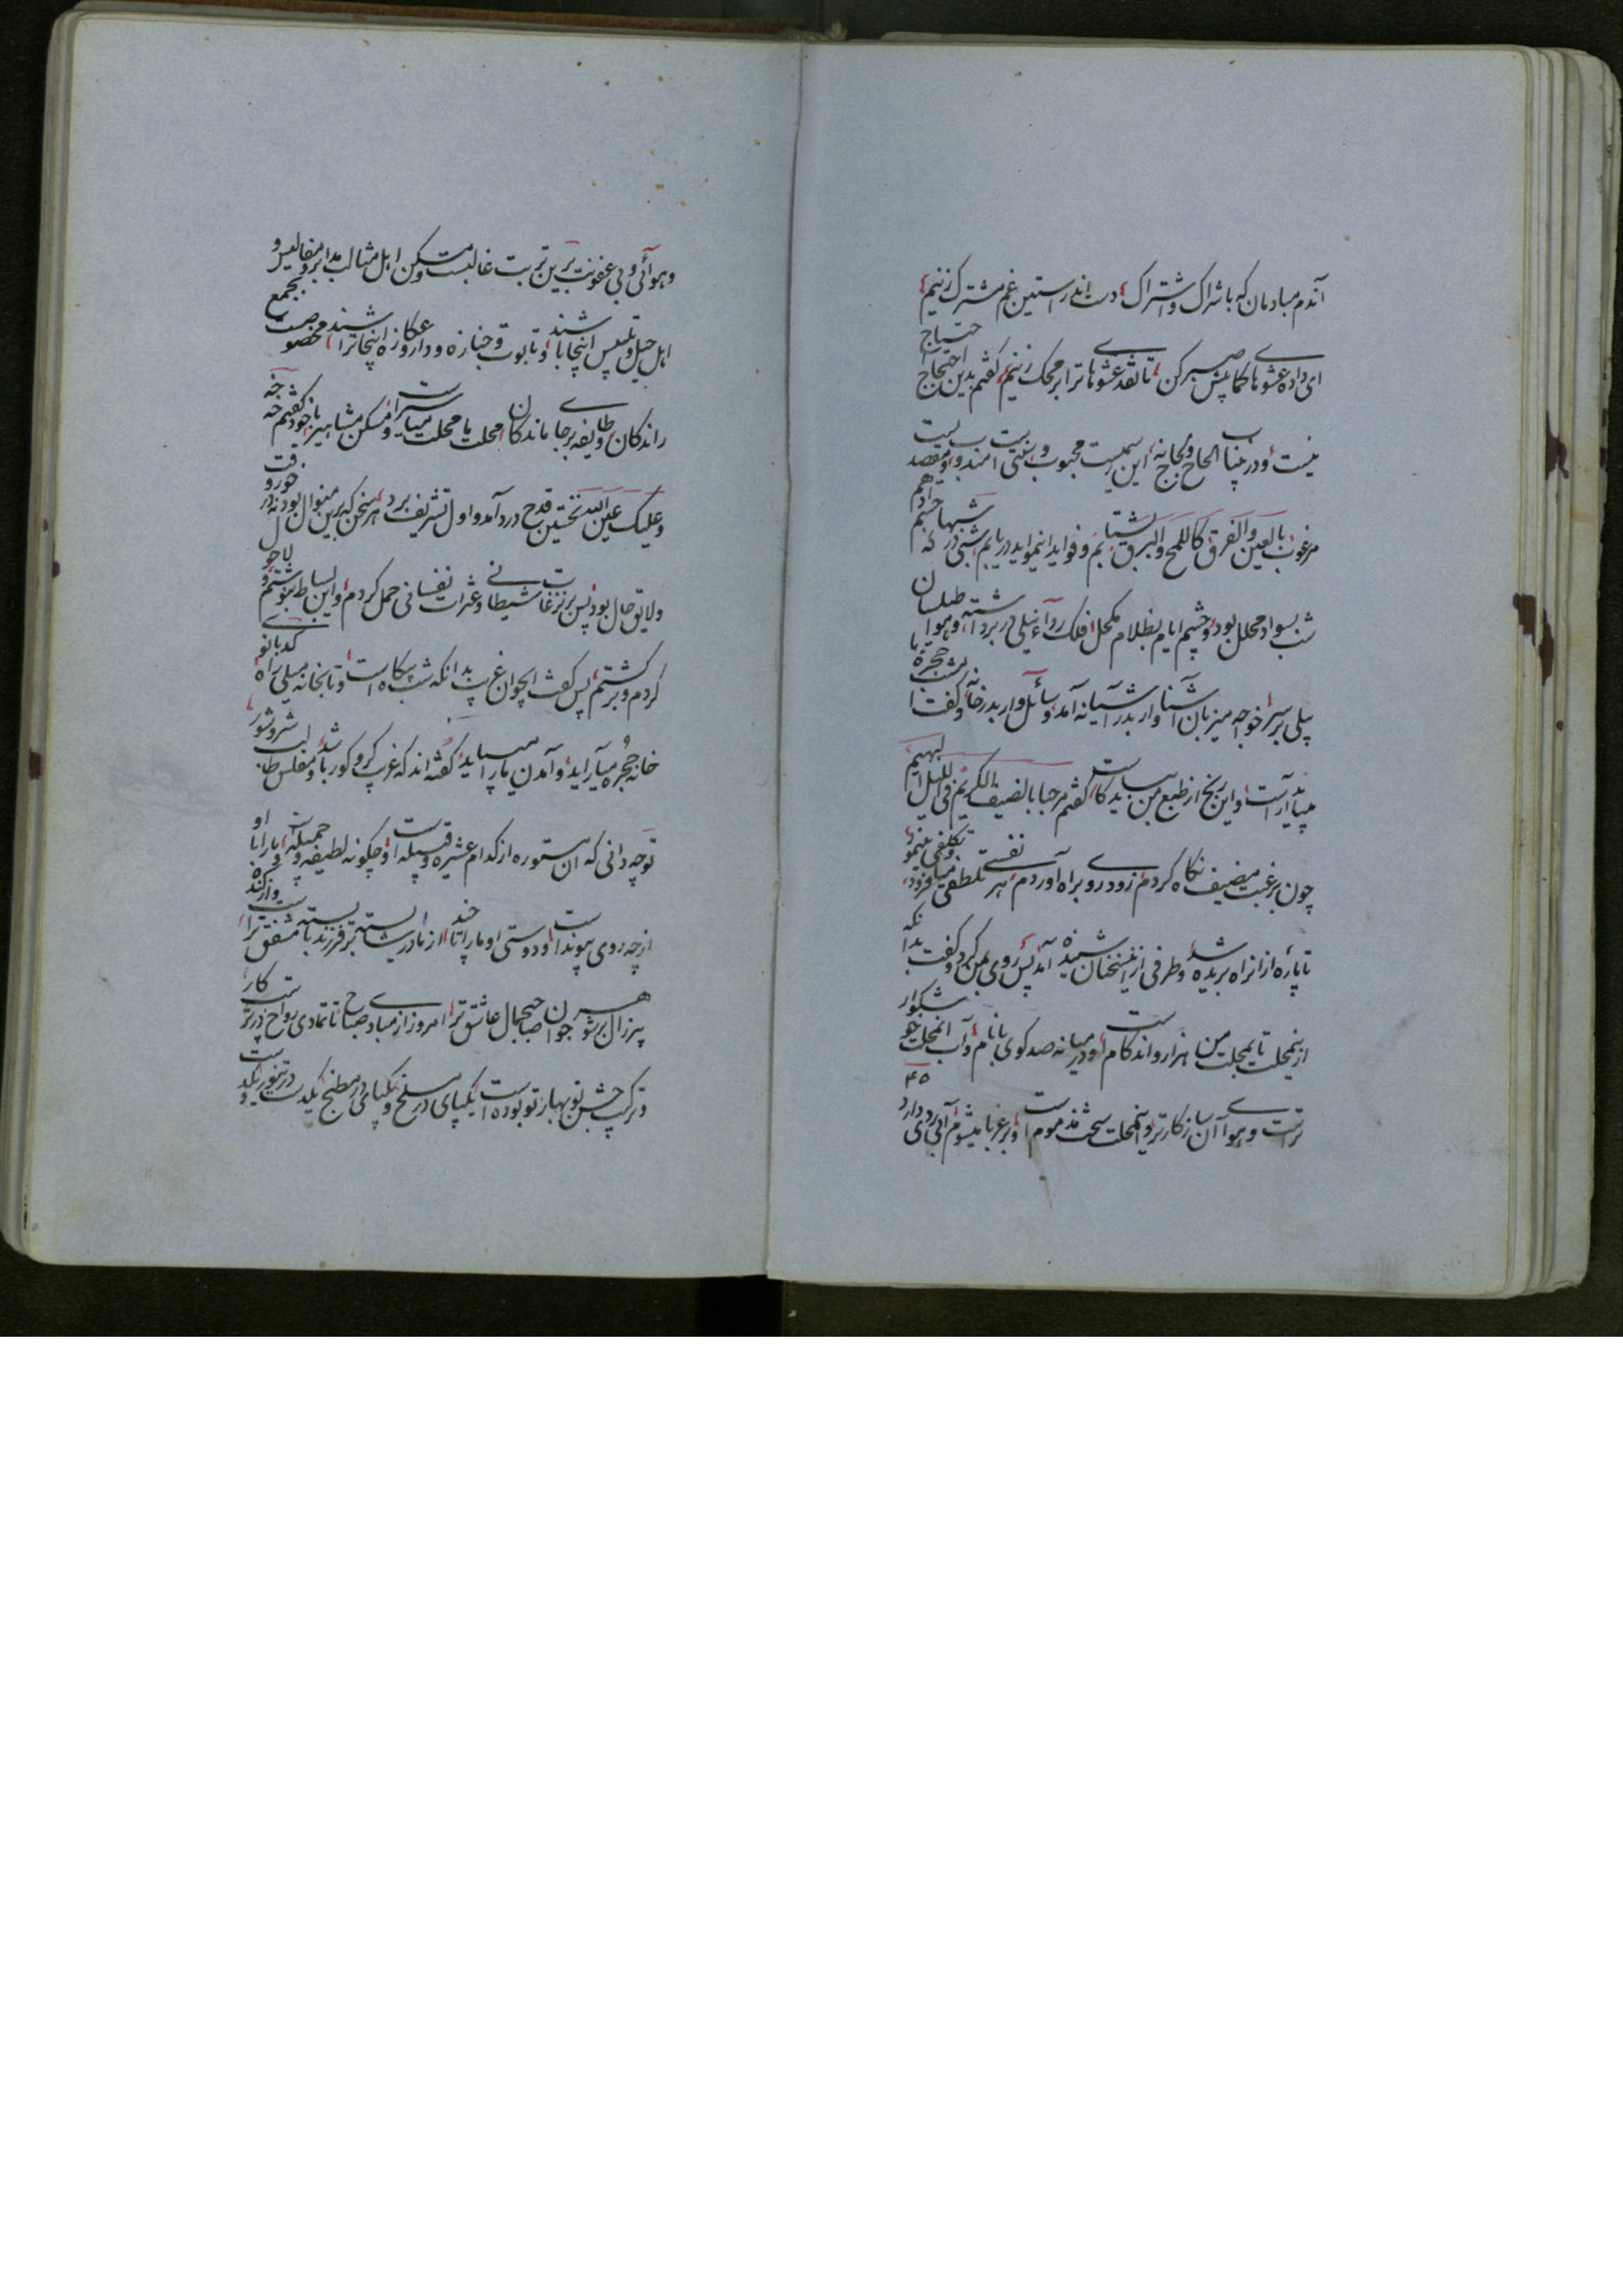 آندم مبادمان که باشراک و اشتراک دست اندر آستین غم مشترک زنیم
ای داده عشوها کم و بیش صبر کن تا نقد عشوهای ترا بر محک زنیم گفتم بدین احتجاج احتیاج
نیست و در این باب الحاح و لجاج نه این سمتیست محبوب و بیتی است مندوب و مقصدیست
مرغوب بالعین والفرق کاللمح والبرق بشتابیم و فواید این مواید دریابیم شبی در که شبها چشم ادهم
شب بسواد محلل بود و چشم ایام بظلام مکحل فلک رداء نیلی در بر داشته و هوا طیلسان
پیلی بر سر خواجه میزبان آشناوار بدر آشیانه آمد و سائل وار بدر خانه و گفت امشب حجره ما
بباید آراست و این رنج از طبع من بباید کاست گفتم مرحبا بالضیف الکریم فی اللیل البهیم
چون برغبت مضیف نگاه کردم زود روی براه آوردم هر نفسی تلطفی میافزود و تکلفی مینمود
تا پاره از آن راه بریده شد و طرفی از این سخنان شنیده آمد پس روی بمن کرد و گفت بدانکه
ازین محلت تا بمحلت من هزار و اند گام است و در میانه صد کوی با نام و آب آن محلت خوشگوار
تر است و هوای آن سازگارتر و این محلت سخت مذموم است و بر غربا میشوم آبی ردی دارد
وهوائی وبی عفونت برین تربت غالبست و مسکن اهل مثالب مدابر و مفالیس و مجمع
اهل حیل و تلبیس اینجا باشند و تابوت و جنازه و دار و عکازه اینجا تراشند مخصوصست
راندگان و طایفه برجای ماندگان محلت با محلت میاسیر است و مسکن مشاهیر با خود گفتم خه خه
و علیک عین الله نخستین قدح درد آمد و اول تشریف برد هر سخن که برین منوال بود نه در خورد وقت
و لایق حال بود پس بر نزغات شیطانی و عثرات نفسانی حمل کردم و این بساط بنوشتم و لاحول
کردم و برگشتم پس گفت ای جوان غریب بدانکه شب بیگاه است و تا بخانه میلی راه کدبانوی
خانه حجره میآراید و آمدن ما را میپاید گفته اند که غریب کر و کور باشد و مفلس طالب شر و شور
تو چه دانی که آن مستوره از کدام عشیره و قبیله است و چگونه لطیفه و جمیله است و ما را با او
از چه روی پیوند است و دوستی او ما را تا چند از مادر شایسته تر فرزند بایسته مشفق تر است و از گنده
پیر زال بر شوهر جوان صاحب جمال عاشق تر است امروز از مبادی صباح تا تمادی رواح در کار
و ترتیب جشن نوبهار تو بوده است یکپای در مسلخ و یکپای در مطبخ یکدست در تنور و یکدست